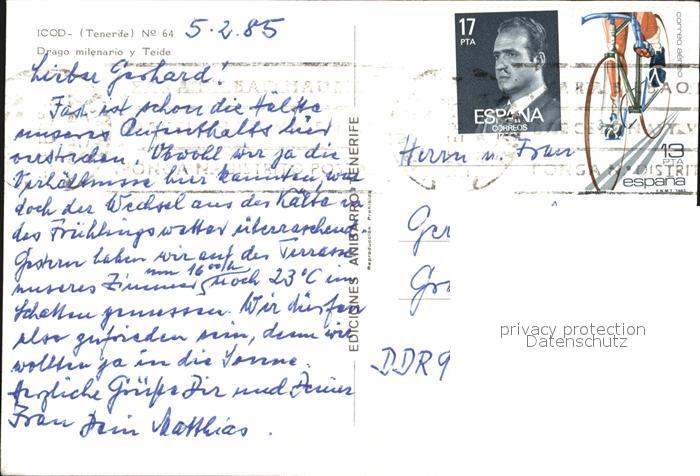 ICOD- (Tenerife) Nº 64
Drago milenario y Teide
5.2.85
Lieber Gerhard!
Fast ist schon die Hälfte
unseres Aufenthalts hier
verstrichen. Obwohl wir ja die
Verhältnisse hier kannten, war
doch der Wechsel aus der Kälte in
das Frühlingswetter überraschend.
Gestern haben wir auf der Terrasse
unseres Zimmers um 16 00/h noch 23°C im
Schatten gemessen. Wir dürfen
also zufrieden sein, denn wir
wollten ja in die Sonne.
Herzliche Grüße Dir und Deiner
Frau Dein Matthias.
EDICIONES ANIBARRO - TENERIFE
Reproducción Prohibida
17
PTA
ESPAÑA
CORREOS
correo aéreo
13
PTA
españa
Herrn u. Frau
Ger
DDR 9
privacy protection
Datenschutz